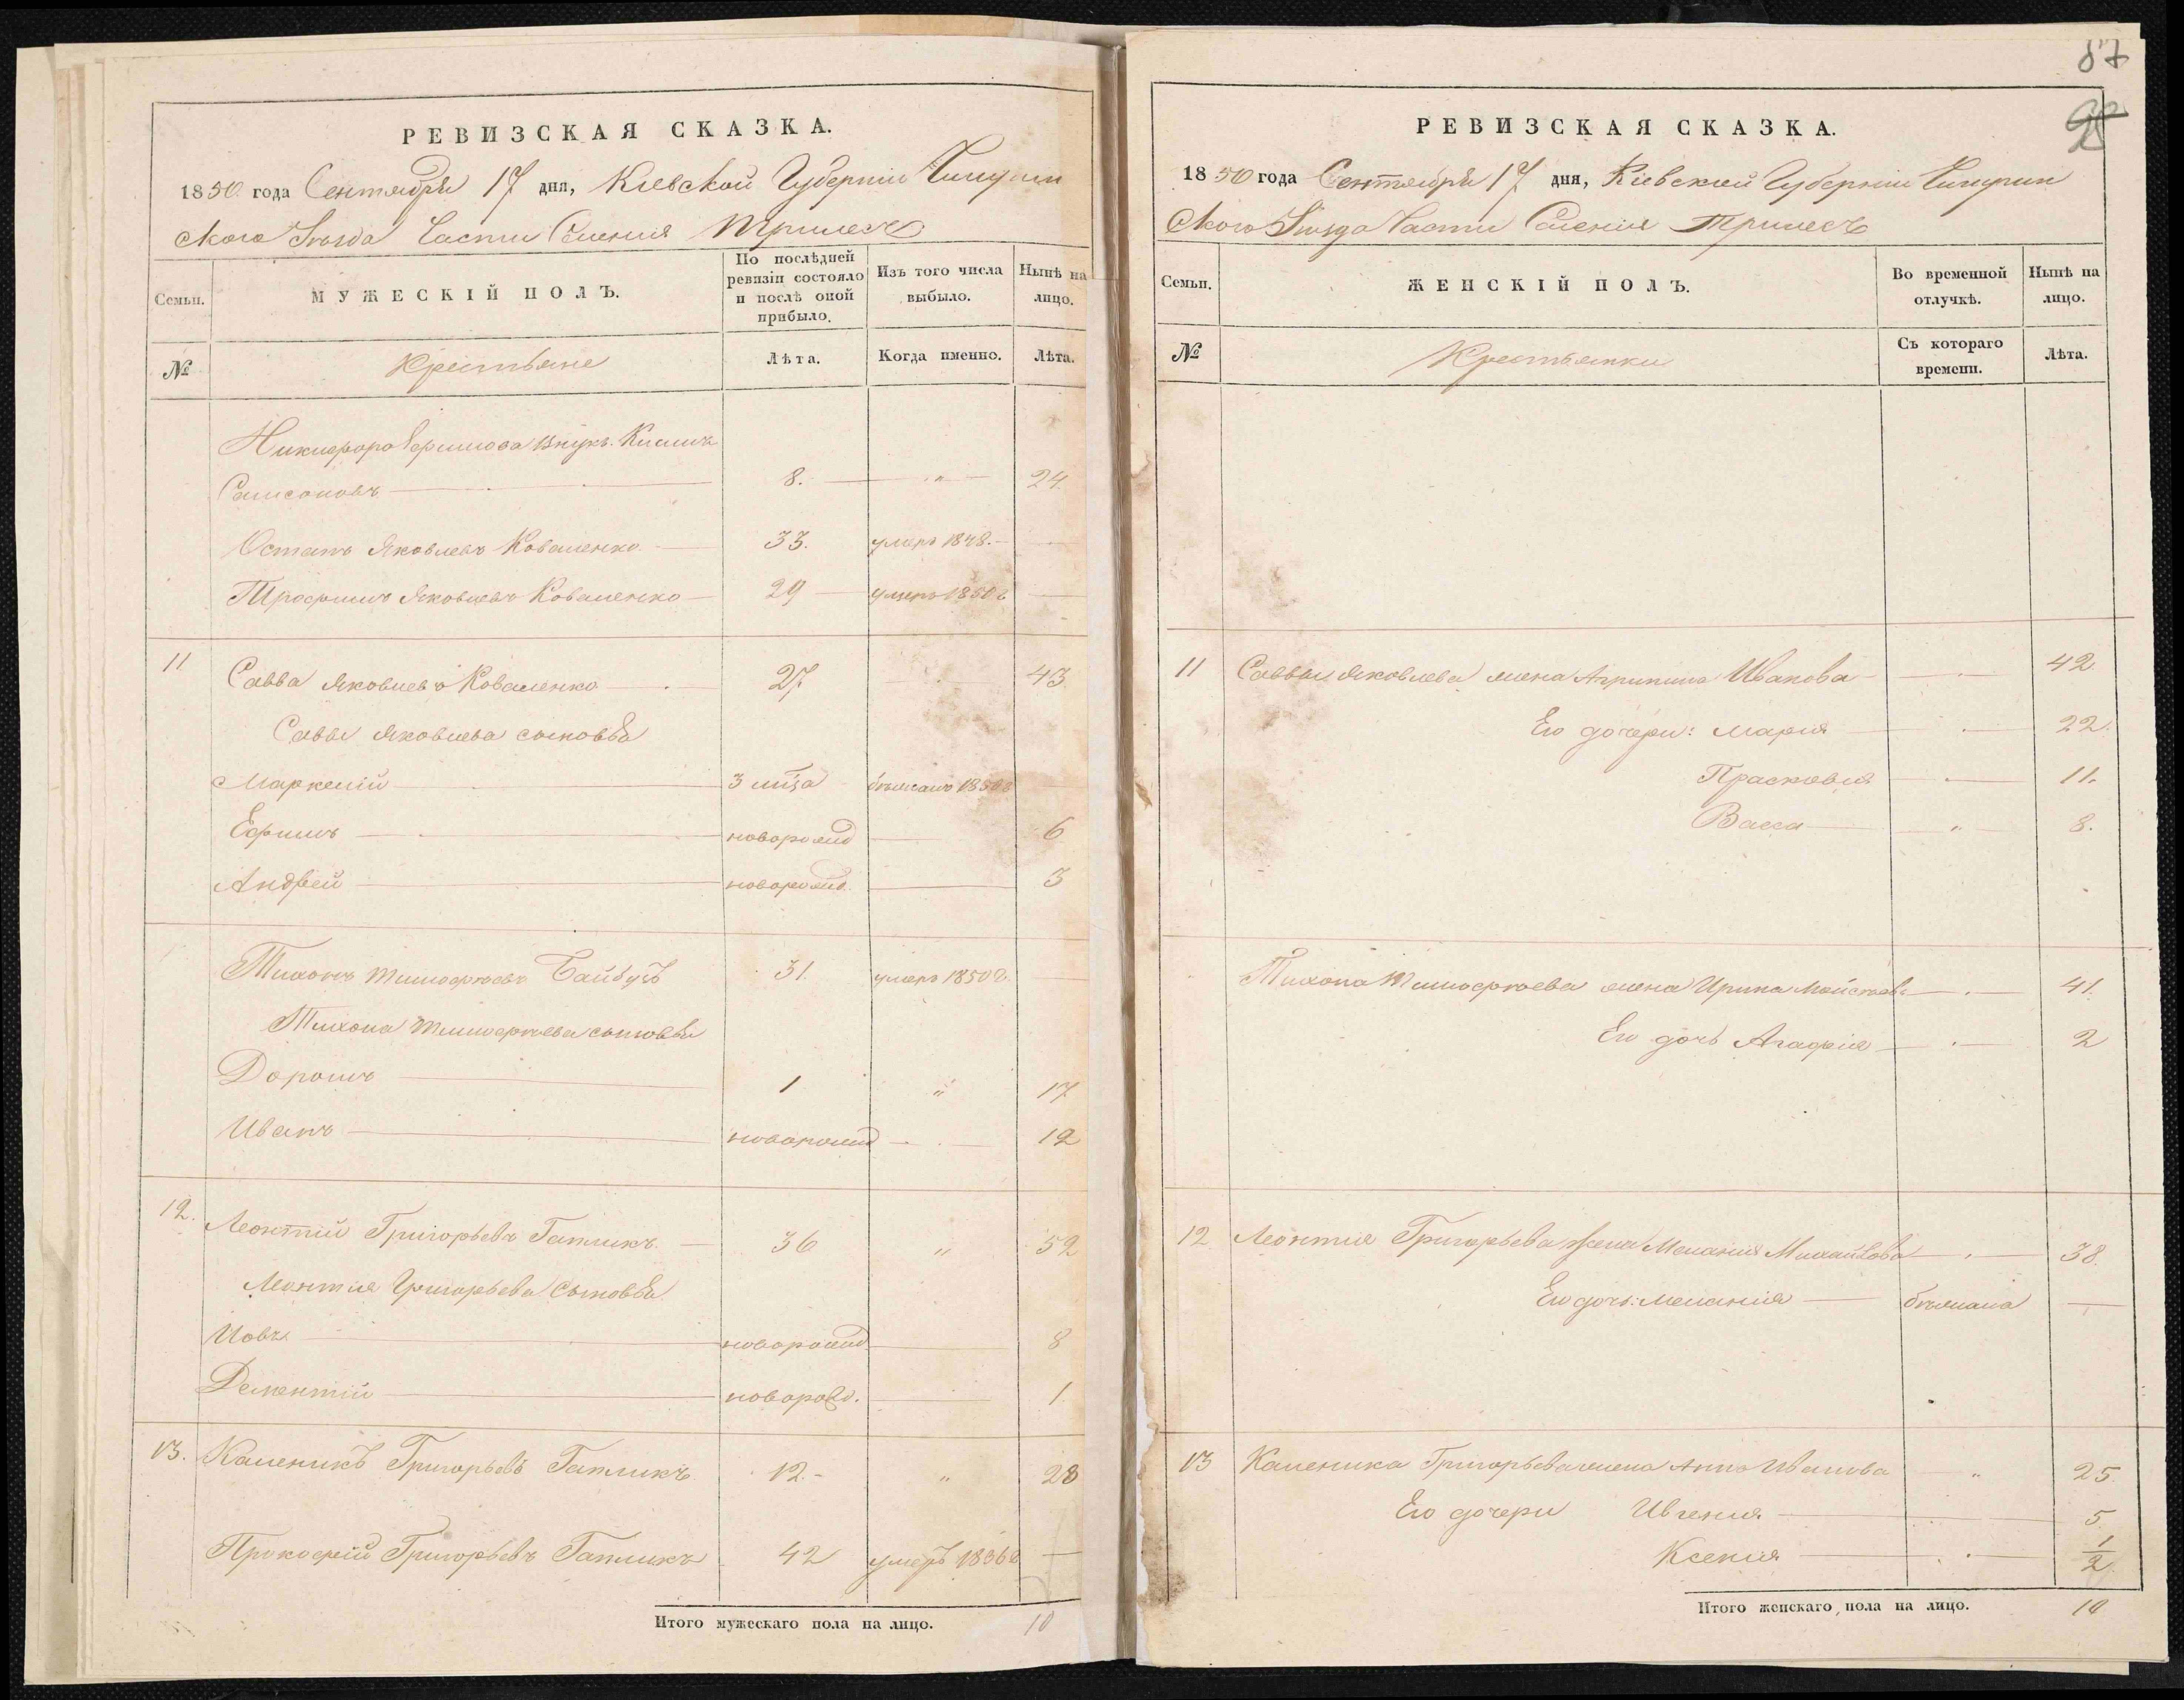 РЕВИЗСКАЯ СКАЗКА.
1850 года Сентября 17 дня, Кіевской Губерніи Чигирин
ского Уѣзда Части Селенія Трилесъ
Семьи. МУЖЕСКІЙ ПОЛЪ. По послѣдней ревизіи состояло и послѣ оной прибыло. Изъ того числа выбыло. Нынѣ на лицо.
№ Крестьяне Лѣта. Когда именно. Лѣта.
Никифора Ефимова внукъ
Самсоновъ 8. " 24
Остапъ Яковлевъ Коваленко 33. умеръ 1848.
Трофимъ Яковлевъ Коваленко 29 умеръ 1850 г
11 Савва Яковлевъ Коваленко 27 43
Саввы Яковлева сыновья
Маркелій 3 мѣся бѣжалъ 1850
Ефимъ новорожд 6
Андрей новорожд. 3
Тихонъ Тимофѣевъ 31. умеръ 1850 г.
Тихона Тимофѣева сыновья
Дорошъ 1 " 17
Иванъ новорожд 12
12. Леонтій Григорьевъ Гатликъ 36 " 52
Леонтія Григорьева сыновья
Іовъ новорожд 8
Дементій новорожд. 1
13. Каленикъ Григорьевъ Гатликъ 12. " 28
Прокофій Григорьевъ Гатликъ 42 умеръ 1836 г
Итого мужескаго пола на лицо. 10
87
РЕВИЗСКАЯ СКАЗКА.
1850 года Сентября 17 дня, Кіевской Губерніи Чигирин
ского Уѣзда Части Селенія Трилесъ
Семьи. ЖЕНСКІЙ ПОЛЪ. Во временной отлучкѣ. Нынѣ на лицо.
№ Крестьянки Съ котораго времени. Лѣта.
11 Саввы Яковлева жена Агрипина Иванова 42
Его дочери: Марія 22.
Прасковія 11.
Васса " 8.
Тихона Тимофѣева жена Ирина Мойсѣева 41.
Его дочь Агафія 2
12 Леонтія Григорьева жена Меланія Михайлова 38.
Его дочь: Меланія бѣжала
13 Каленика Григорьева жена Анна Иванова " 25.
Его дочери Ивгенія 5.
Ксенія 1/2
Итого женскаго пола на лицо. 10